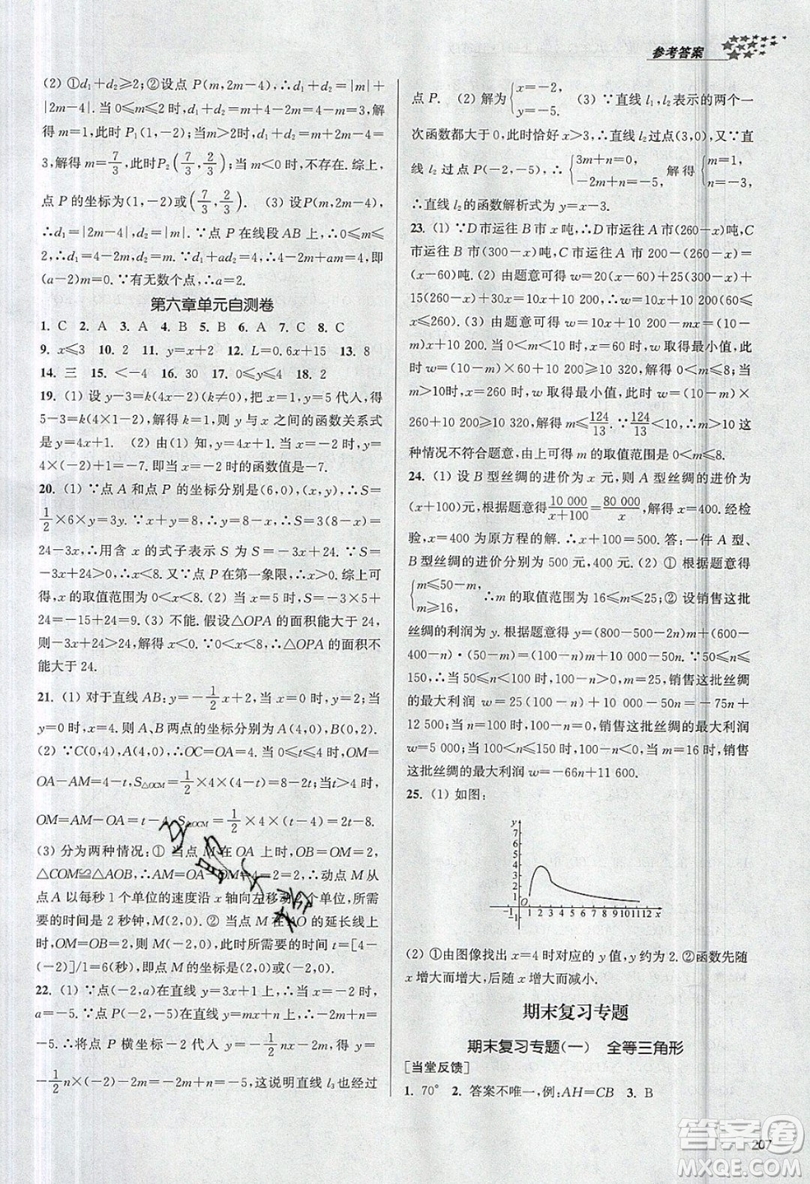 参考答案
(2) ① d₁+d₂≥2; ② 设点 P(m,2m-4),∴d₁+d₂=|m|+
|2m-4|. 当 0≤m≤2 时,d₁+d₂=m+4-2m=4-m=3,解
得 m=1,此时 P₁(1,-2);当 m>2 时,d₁+d₂=m+2m-4=
3,解得 m=7/3,此时 P₂(7/3,2/3);当 m<0 时,不存在. 综上,
点 P 的坐标为(1,-2)或(7/3,2/3). (3) 设 P(m,2m-4),∴
d₁=|2m-4|,d₂=|m|. ∵点 P 在线段 AB 上,∴0≤m≤2,
∴d₁=4-2m,d₂=m. ∵d₁+ad₂=4,∴4-2m+am=4,∴
(a-2)m=0. ∵有无数个点,∴a=2.
第六章单元自测卷
1. C 2. A 3. A 4. B 5. B 6. A 7. C 8. C
9. x≤3 10. 2 11. y=x+2 12. L=0.6x+15 13. 8
14. 三 15. <-4 16. 30 17. 0≤y≤4 18. 2
19. (1) 设 y-3=k(4x-2)(k≠0),把 x=1,y=5 代入,得
5-3=k(4×1-2),解得 k=1,则 y 与 x 之间的函数关系式
是 y=4x+1. (2) 由(1) 知,y=4x+1. 当 x=-2 时,y=
4×(-2)+1=-7. 即当 x=-2 时的函数值是-7.
20. (1) ∵点 A 和点 P 的坐标分别是(6,0)、(x,y),∴S=
1/2×6×y=3y. ∵x+y=8,∴y=8-x. ∴S=3(8-x)=
24-3x,∴用含 x 的式子表示 S 为 S=-3x+24. ∵S=
-3x+24>0,∴x<8. ∵点 P 在第一象限,∴x>0,∴0<x<
8. ∴x 的取值范围为 0<x<8. (2) 当 x=5 时,S=-3×5+
24=-15+24=9. (3) 不能. 假设△OPA 的面积能大于 24,
则-3x+24>24,解得 x<0. ∵0<x<8,∴△OPA 的面积不
能大于 24.
21. (1) 对于直线 AB:y=-1/2x+2,当 x=0 时,y=2;当
y=0 时,x=4,则 A、B 两点的坐标分别为 A(4,0)、B(0,2).
(2) ∵C(0,4),A(4,0),∴OC=OA=4. 当 0≤t≤4 时,OM=
OA-AM=4-t,S△OCM=1/2×4×(4-t)=8-2t;当 t>4 时,
OM=AM-OA=t-4,S△OCM=1/2×4×(t-4)=2t-8.
(3) 分为两种情况:① 当点 M 在 OA 上时,OB=OM=2,
△COM≌△AOB,∴AM=OA-OM=4-2=2,∴动点 M
从点 A 以每秒 1 个单位的速度沿 x 轴向左移动 2 个单位,所
需要的时间是 2 秒钟,M(2,0). ② 当点 M 在 AO 的延长线上
时,OM=OB=2,则 M(-2,0),此时所需要的时间 t=[4-
(-2)]/1=6(秒),即点 M 的坐标是 M(2,0)或(-2,0).
22. (1) ∵点(-2,a)在直线 y=3x+1 上,∴当 x=-2 时,
a=-5. ∵直线 y=mx+n 也经过点(-2,-5),∴-2m+n=
-5. ∵点 P 横坐标为-2,∴当 x=-2 时,y=-1/2n×(-2)-2m=
-2m+n=-5,∴直线 y=-1/2nx-2m 也经过
点 P. (2) 解为{x=-2, y=-5. (3) ∵直线 l₁,l₂表示的两个一
次函数都大于 0,此时恰好 x>3,∴直线 l₂ 过点(3,0),又∵直
线 l₂ 过点 P(-2,-5),∴{3m+n=0, -2m+n=-5, 解得{m=1, n=-3,
∴直线 l₂的函数解析式为 y=x-3.
23. (1) ∵D 市运往 B 市 x 吨,∴D 市运往 A 市(260-x)吨,C
市运往 B 市(300-x)吨,C 市运往 A 市 200-(260-x)=
(x-60)吨. (2) 由题意可得 w=20(x-60)+25(300-x)+
15(260-x)+30x=10x+10 200,∴w=10x+10 200(60≤
x≤260). (3) 由题意可得 w=10x+10 200-mx=(10-m)x
+10 200. 当 0<m<10 时,x=60 时,w 取得最小值,此时
w=(10-m)×60+10 200≥10 320,解得 0<m≤8. 当
m>10 时,x=260 时,w 取得最小值,此时 w=(10-m)×
260+10 200≥10 320,解得 m≤124/13. ∵124/13<10,∴m>10 这
种情况不符合题意. 由上可得,m 的取值范围是 0<m≤8.
24. (1) 设 B 型丝绸的进价为 x 元,则 A 型丝绸的进价为
(x+100)元,根据题意得10 000/(x+100)=80 000/x,解得 x=400. 经检
验,x=400 为原方程的解. ∴x+100=500. 答:一件 A 型、
B 型丝绸的进价分别为 500 元、400 元. (2) ① 根据题意得
{m≤50-m, m≥16, ∴m 的取值范围为 16≤m≤25; ② 设销售这批
丝绸的利润为 y. 根据题意得 y=(800-500-2n)m+
(600-400-n)·(50-m)=(100-n)m+10 000-50n. ∵50≤n≤
150,∴当 50≤n<100 时,100-n>0,m=25 时,销售这批丝
绸的最大利润 w=25(100-n)+10 000-50n=-75n+
12 500;当 n=100 时,100-n=0,销售这批丝绸的最大利润
w=5 000;当 100<n≤150 时,100-n<0,m=16 时,销售
这批丝绸的最大利润 w=-66n+11 600.
25. (1) 如图:
y
7
6
5
4
3
2
1
O
1 2 3 4 5 6 7 8 9 10 11 12 x
-1
-1
(2) ①由图像找出 x=4 时对应的 y 值,y 约为 2. ②函数先随
x 增大而增大,后随 x 增大而减小.
期末复习专题
期末复习专题(一) 全等三角形
[当堂反馈]
1. 70° 2. 答案不唯一,例:AH=CB 3. B
207
答案圈
MXQE.COM